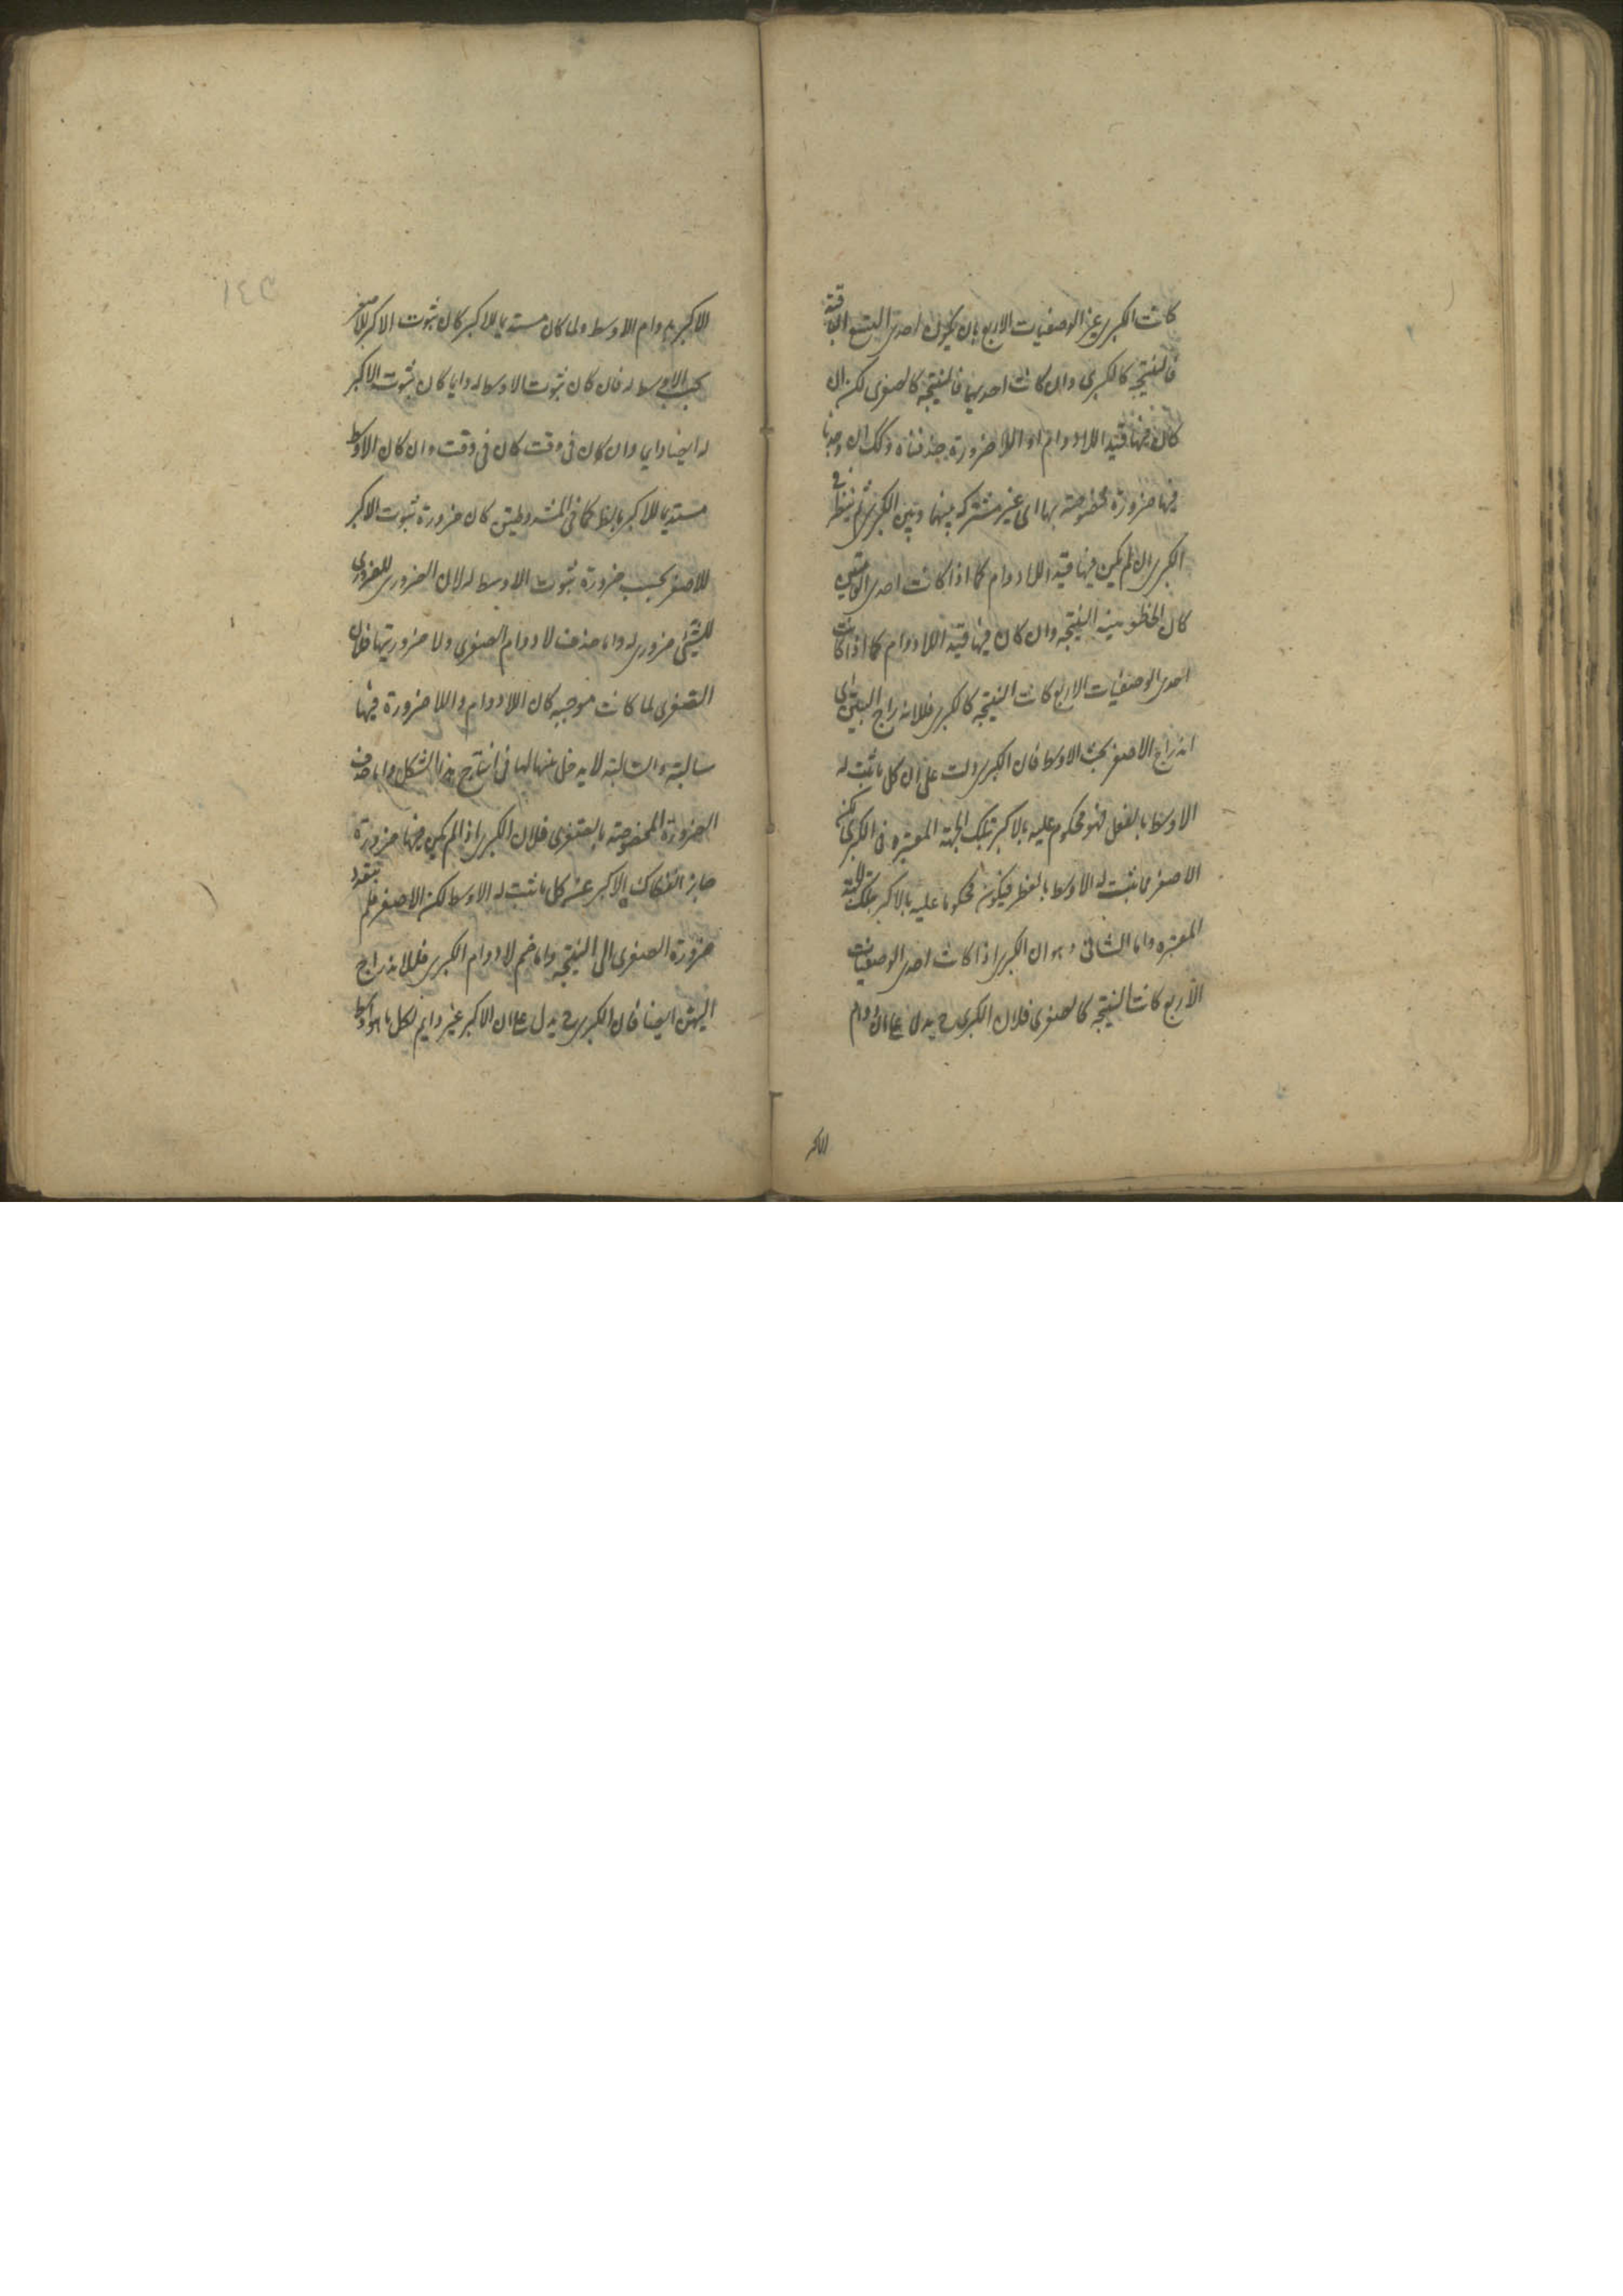 كانت الكبرى غير الوصفيات الاربع بان يكون احدى التسع الباقية
فالنتيجة كالكبرى وان كانت احديها فالنتيجة كالصغرى لكن ان
كان فيها قيد اللادوام او اللاضرورة حذفناه وكذلك ان وجدنا
فيها ضرورة مخصوصة بها اى غير مشتركه بينها وبين الكبرى ثم ينظر فى
الكبرى ان لم يكن فيها قيد اللادوام كما اذا كانت احدى العامتين
كان المحفوظ بعينه النتيجة وان كان فيها قيد اللادوام كما اذا كانت
احدى الوصفيات الاربع كانت النتيجة كالكبرى فللاندراج البين اى
اندراج الاصغر تحت الاوسط فان الكبرى دلت على ان كل ما ثبت له
الاوسط بالفعل فهو محكوم عليه بالاكبر بتلك الجهة المعتبره فى الكبرى لكن
الاصغر مما ثبت له الاوسط بالفعل فيكون محكوما عليه بالاكبر بتلك الجهة
المعتبره واما الثانى وهو ان الكبرى اذا كانت احدى الوصفيات
الاربع كانت النتيجة كالصغرى فلان الكبرى ح يدل على ان دوام
الاكبر
١٤٥
الاكبر بدوام الاوسط ولما كان مستديما للاكبر كان ثبوت الاكبر للاصغر
بحسب الاوسط له فان كان ثبوت الاوسط له دايما كان ثبوت الاكبر
له ايضا دايما وان كان فى وقت كان فى وقت وان كان الاوسط
مستديما للاكبر بالضرورة كما فى المشروطتين كان ضرورة ثبوت الاكبر
للاصغر بحسب ضرورة ثبوت الاوسط له لان الضرورى للضرورى
للشئ ضرورى له واما حذف لادوام الصغرى ولا ضروريتها فلان
الصغرى لما كانت موجبه كان اللادوام واللاضرورة فيها
سالبة والسالبة لا يدخل لها فى انتاج هذا الشكل واما حذف
الضرورة المخصوصة بالصغرى فلان الكبرى اذا لم يكن فيها ضرورة
جاز انفكاك الاكبر عن كل ما ثبت له الاوسط لكن الاصغر فلم يتعد
ضرورة الصغرى الى النتيجة واما ضم لادوام الكبرى فللاندراج
البين ايضا فان الكبرى ح يدل على ان الاكبر غير دايم لكل ما هو اوسط